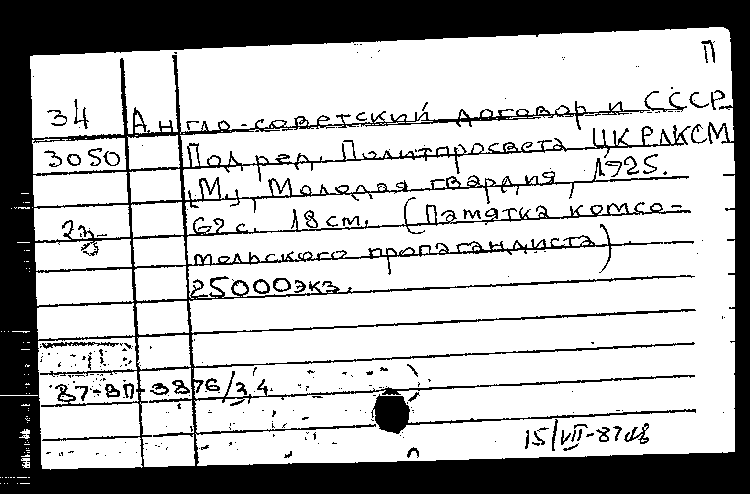 П
34 Англо-советский договор и СССР
3050 Под ред. Политпросвета ЦК РЛКСМ
[М.], Молодая гвардия, 1925.
2э 62 с. 18 см. (Памятка комсо-
мольского пропагандиста)
25000 экз.
87-ВП-3876/3,4
15/VII-87